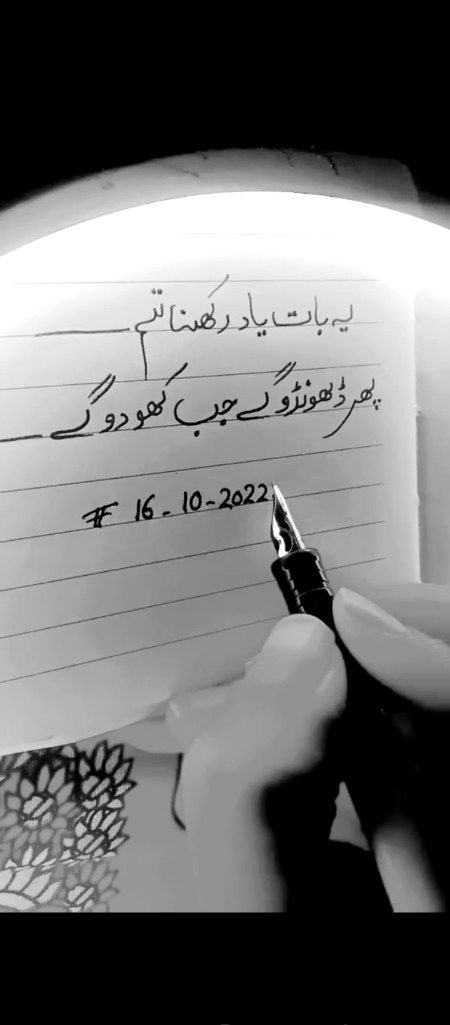 یہ بات یاد رکھنا تم
پھر ڈھونڈو گے جب کھو دو گے
# 16 - 10 - 2022